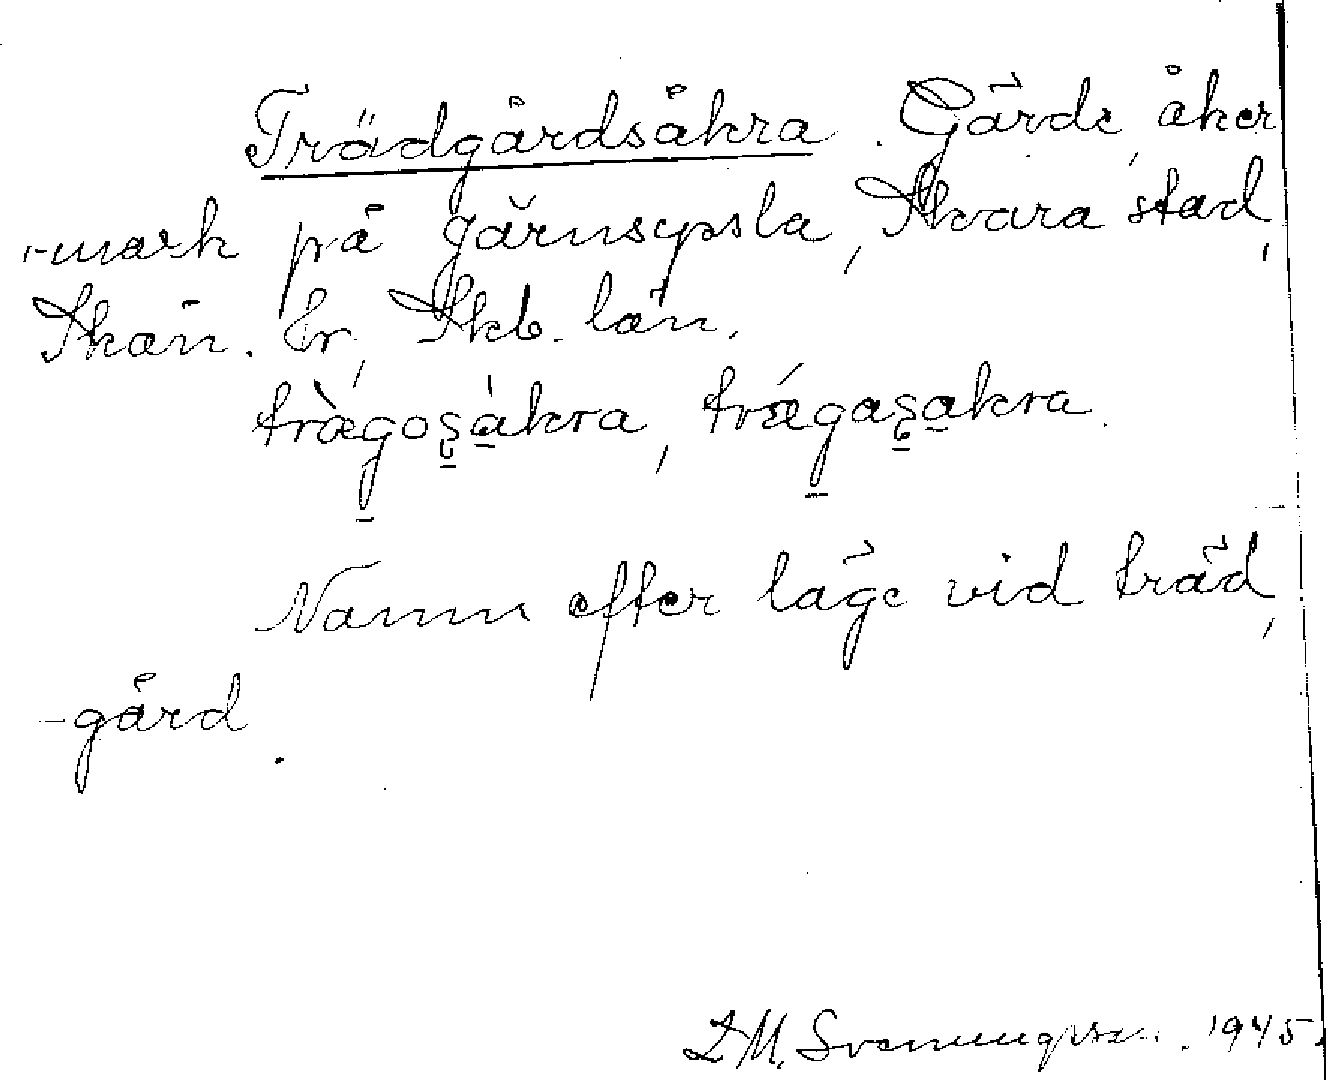 Trädgårdsåkra. Gärde, åker
-mark på Gärnsypsla, Skara stad,
Skån. hr, Skb. län.
trägosåkra, trägasakra.
Namn efter läge vid träd,
-gård.
D.M. Svenungsson. 1945.